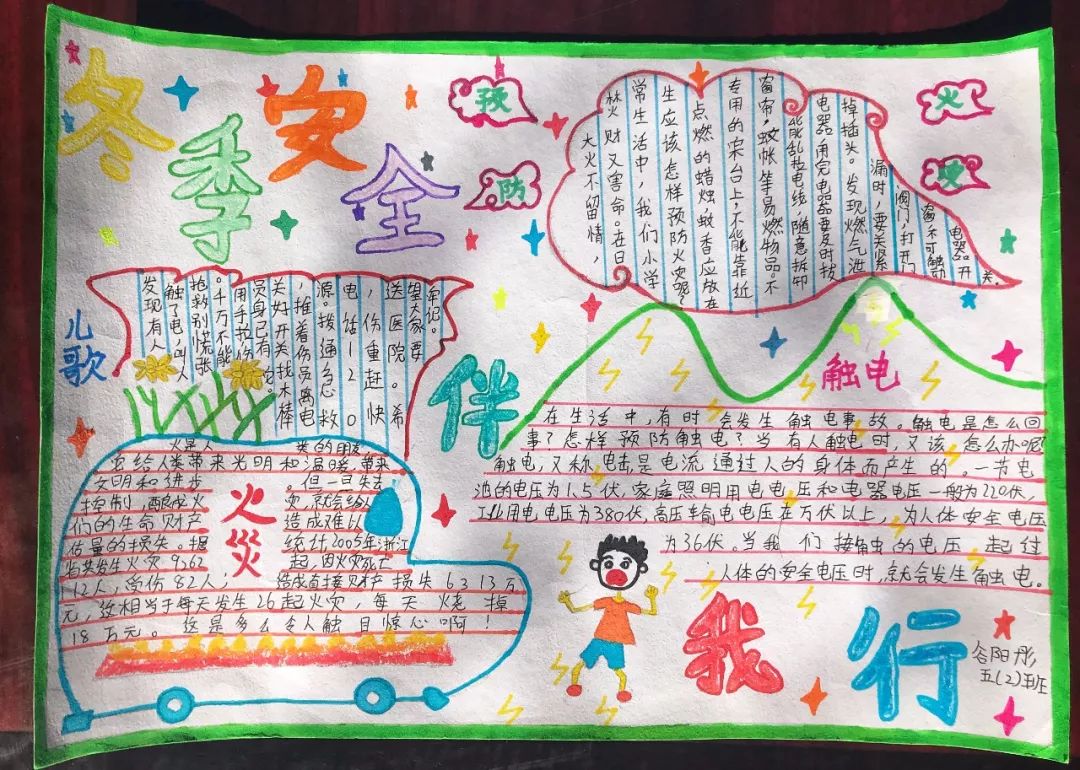 冬季安全
伴我行
预防火灾
大火不留情，
焚财又害命。在日
常生活中，我们小学
生应该怎样预防火灾呢？
点燃的蜡烛蚊香应放在
专用的架台上，不能靠近
窗帘，蚊帐等易燃物品。不
能乱拉电线，随意拆卸
电器，用完电器要及时拔
掉插头。发现燃气泄
漏时，要关紧
阀门，打开门
窗，不可触动
电器开
关。
儿歌
发现有人
触了电，叫人
抢救别慌张
。千万不能
用手拉，
员身已有
关好开关找木棒
，推着伤员离电
源。拨通急救
电话120
，伤重赶快
送医院。希
望大家要
牢记。
火灾
火是人类的朋友
它给人类带来光明和温暖，带来
文明和进步。但一旦失去
控制，酿成火灾，就会给人
们的生命财产造成难以
估量的损失。据统计2005年浙江
省共发生火灾9362起，因火灾死亡
12人，受伤82人；造成直接财产损失6313万
元，这相当于每天发生26起火灾，每天烧掉
18万元。这是多么令人触目惊心啊！
触电
在生活中，有时会发生触电事故。触电是怎么回
事？怎样预防触电？当有人触电时，又该怎么办呢
触电，又称电击，是电流通过人的身体而产生的。一节电
池的电压为1.5伏，家庭照明用电电压和电器电压一般为220伏，
工业用电电压为380伏，高压输电电压在万伏以上，为人体安全电压
为36伏。当我们接触的电压起过
人体的安全电压时，就会发生触电。
谷阳彤
五(2)班